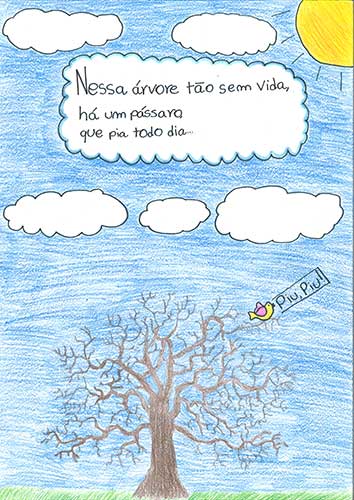 Nessa árvore tão sem vida,
há um pássaro
que pia todo dia...
Piu, Piu!!